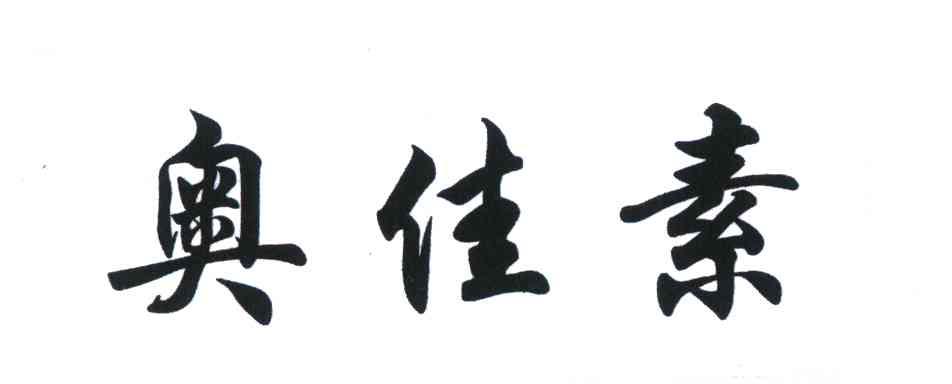 奥佳素